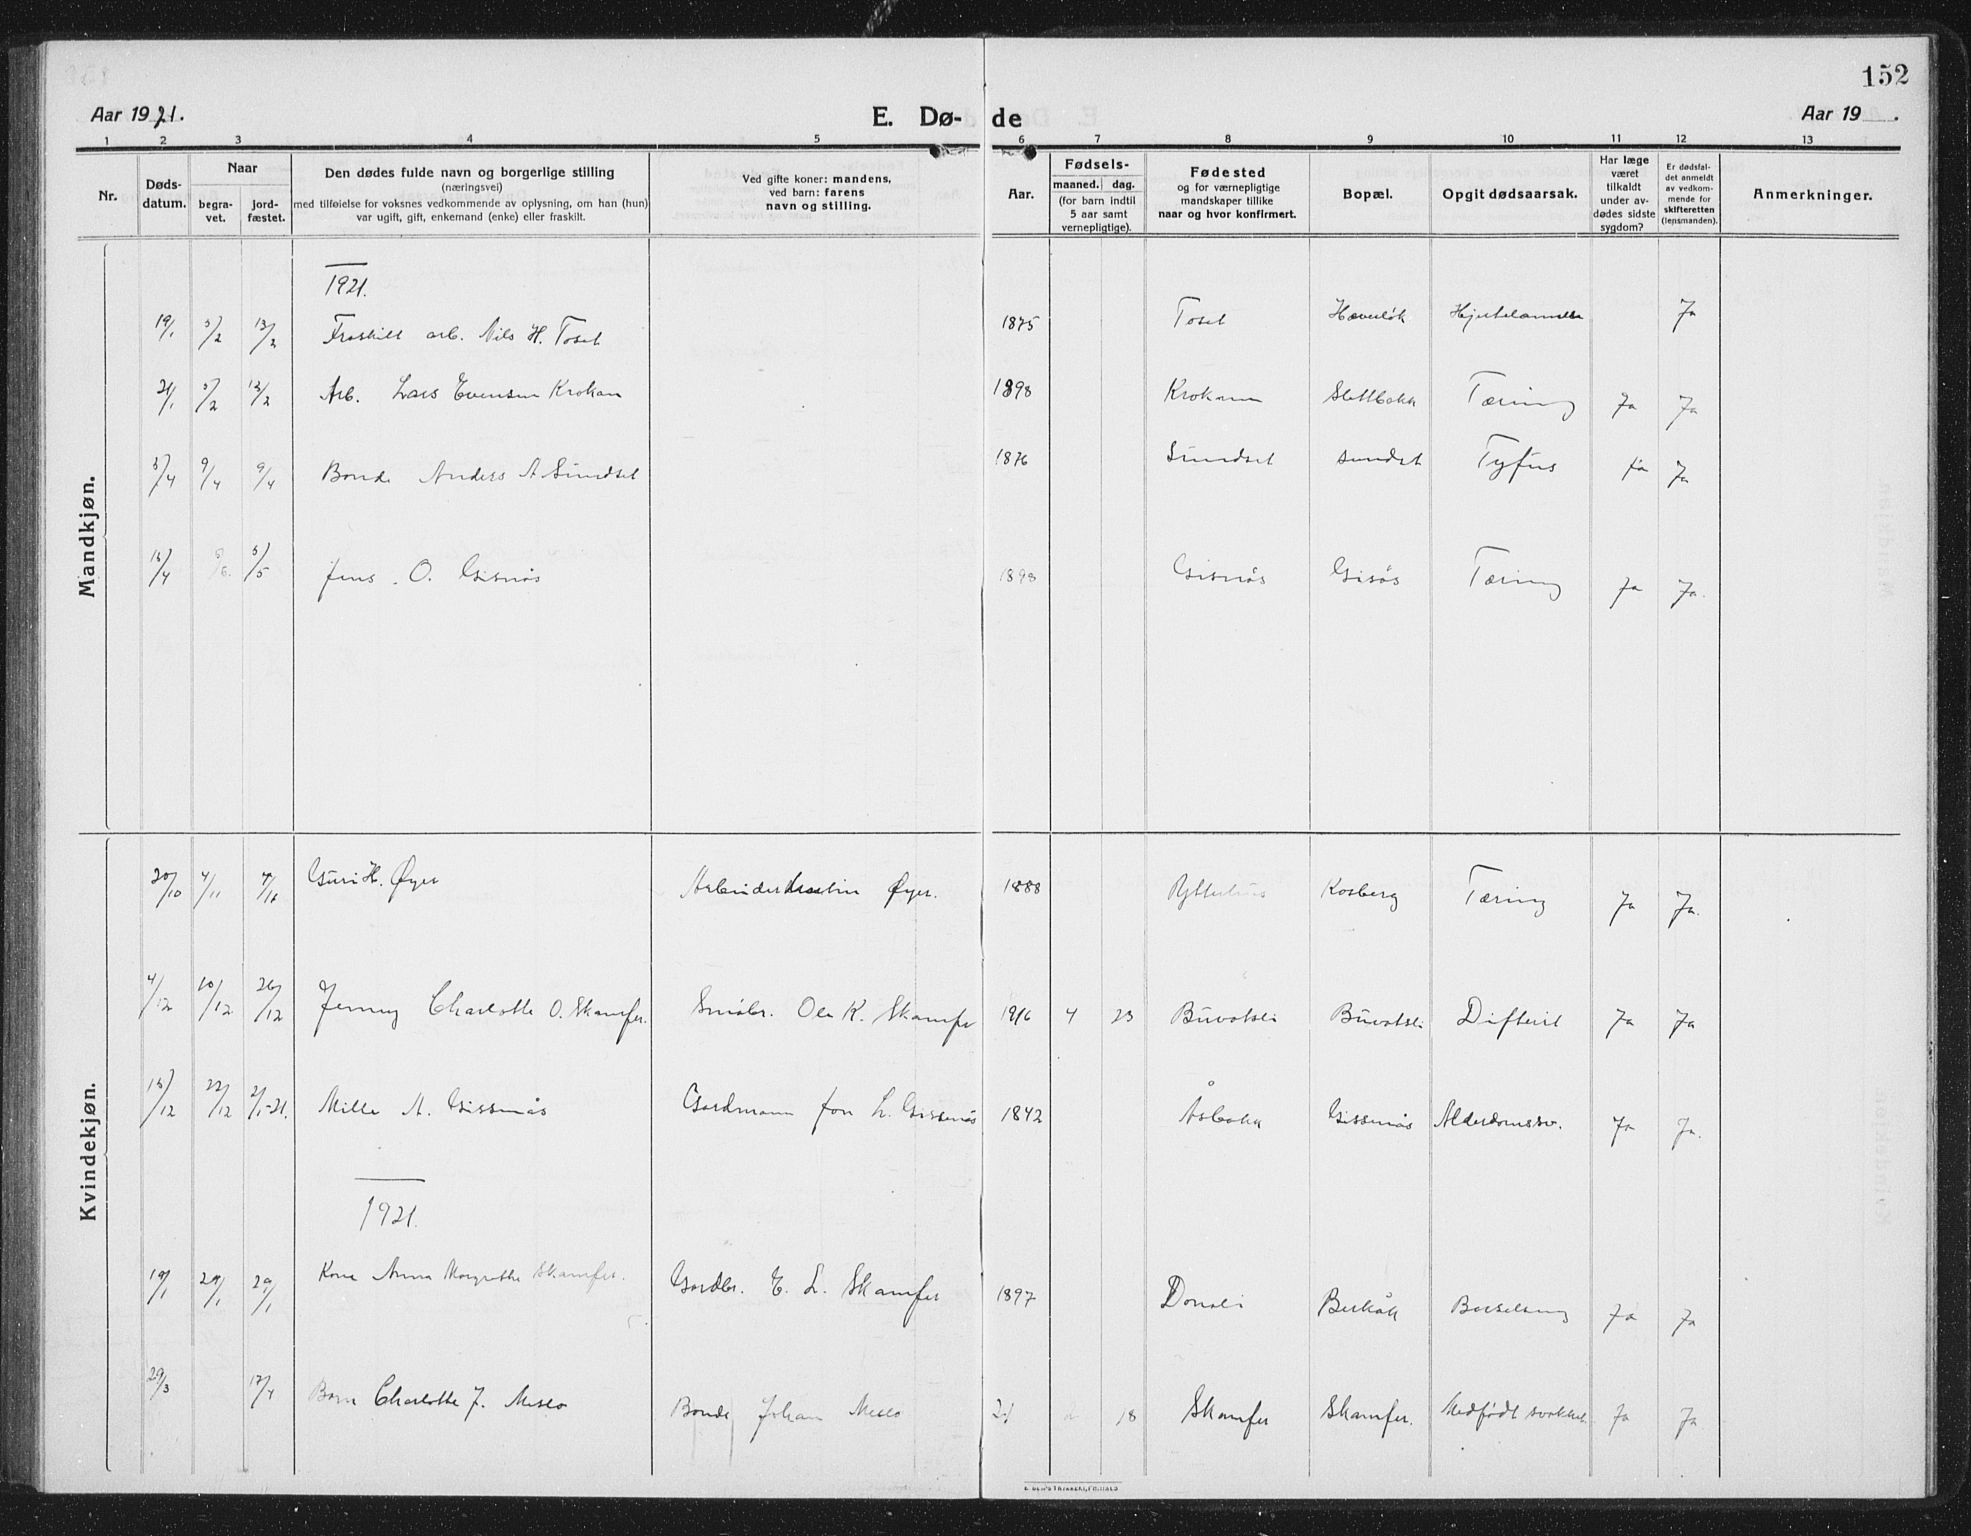 152
Aar 1921.
E. Dø-
de
Aar 19 .
1 2 3 4 5 6 7 8 9 10 11 12 13
Nr.
Døds-
datum.
Naar
begra-
vet.
jord-
fæstet.
Den dødes fulde navn og borgerlige stilling
(næringsvei)
med tilføielse for voksnes vedkommende av oplysning, om han (hun)
var ugift, gift, enkemand (enke) eller fraskilt.
Ved gifte koner: mandens,
ved barn: farens
navn og stilling.
Aar.
Fødsels-
maaned. dag.
(for barn indtil
5 aar samt
vernepligtige).
Fødested
og for værnepligtige
mandskaper tillike
naar og hvor konfirmert.
Bopæl.
Opgit dødsaarsak.
Har læge
været
tilkaldt
under av-
dødes sidste
sygdom?
Er dødsfal-
det anmeldt
av vedkom-
mende for
skifteretten
(lensmanden).
Anmerkninger.
Mandkjøn.
1921.
19/1 5/2 13/2 Fraskilt arb. Nils H. Toset 1875 Toset Hjertelammelse Ja
21/1 5/2 13/2 Arb. Lars Evensen Krokan 1898 Krokann Slettbakk Tæring Ja Ja
5/4 9/4 9/4 Bonde Anders A Sundset 1876 Sundset Sundset Tyfus Ja Ja
15/4 5/5 Jens O. Gisnås 1898 Gisnås Gisås Tæring Ja Ja.
Kvindekjøn.
20/10 4/11 4/11 Guri H. Øyer Øyer. 1888 Rytterhus Kosberg Tæring Ja Ja.
4/12 10/12 26/12 Jenny Charlotte O. Skamfer. Småbr. Ole K. Skamfer 1916 4 23 Buvatsli Buvatsli Difterit Ja Ja
15/12 22/12 2/1-21. Mille A. Gissnås Gardmann Jon L. Gissnås 1842 Åsbakk Gissnås Alderdomssv. Ja Ja.
1921.
19/1 29/1 29/1 Kone Anna Margrethe Skamfer. Gardbr. E. L. Skamfer 1897 Donali Berkåk Barselseng Ja Ja
29/3 17/4 Barn Charlotte J. Meslo Bonde Johan Meslo 21 18 Skamfer Skamfer. Medfødt svakhet Ja Ja